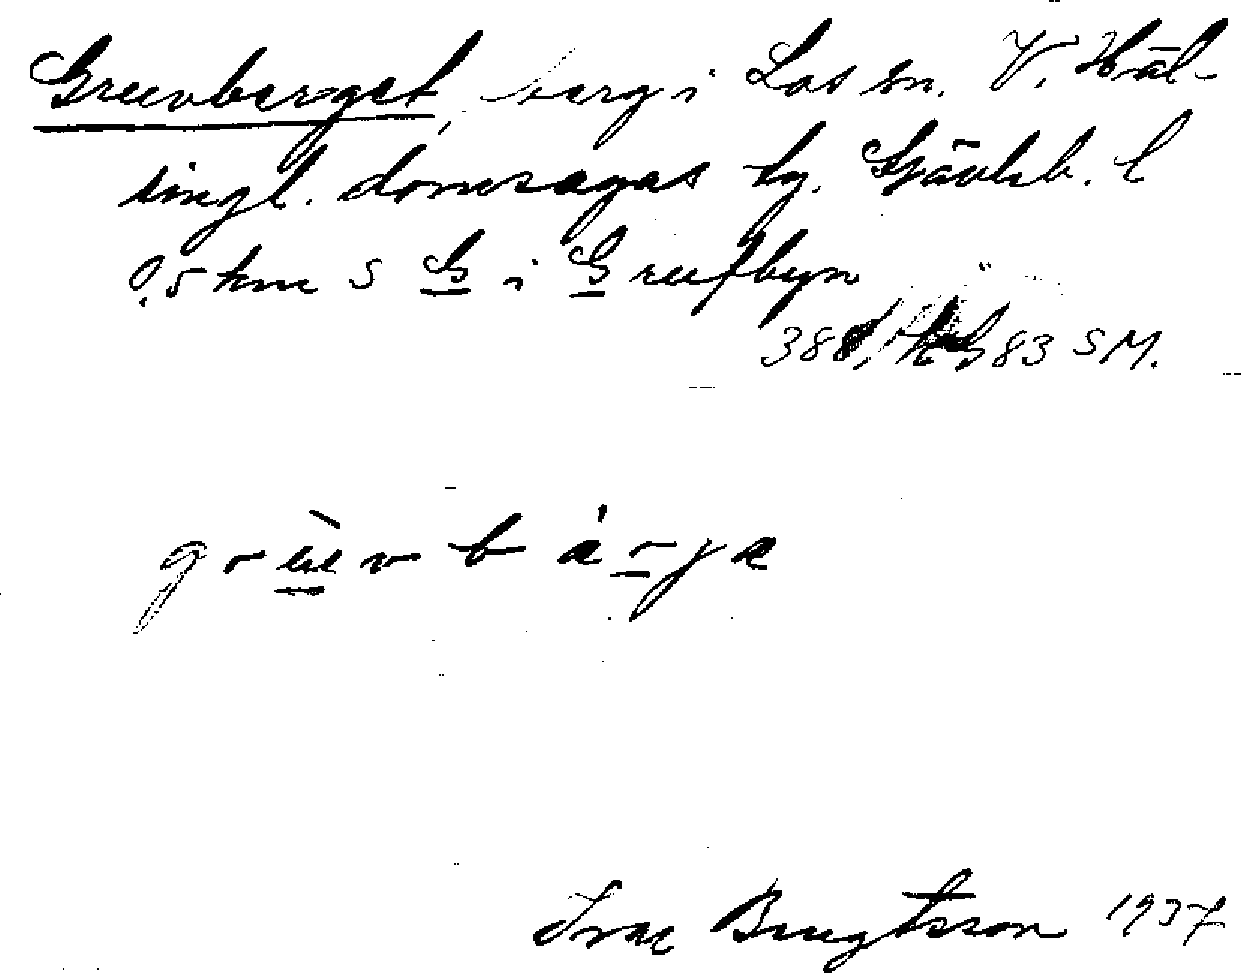 Gruvberget, berg i Los sn. V. Häl-
singl. domsagas tg. Gävleb. l
0,5 km S G i Gruvbyn
83 SM.
grùvbárjɑ
Ivar Bengtsson 1937